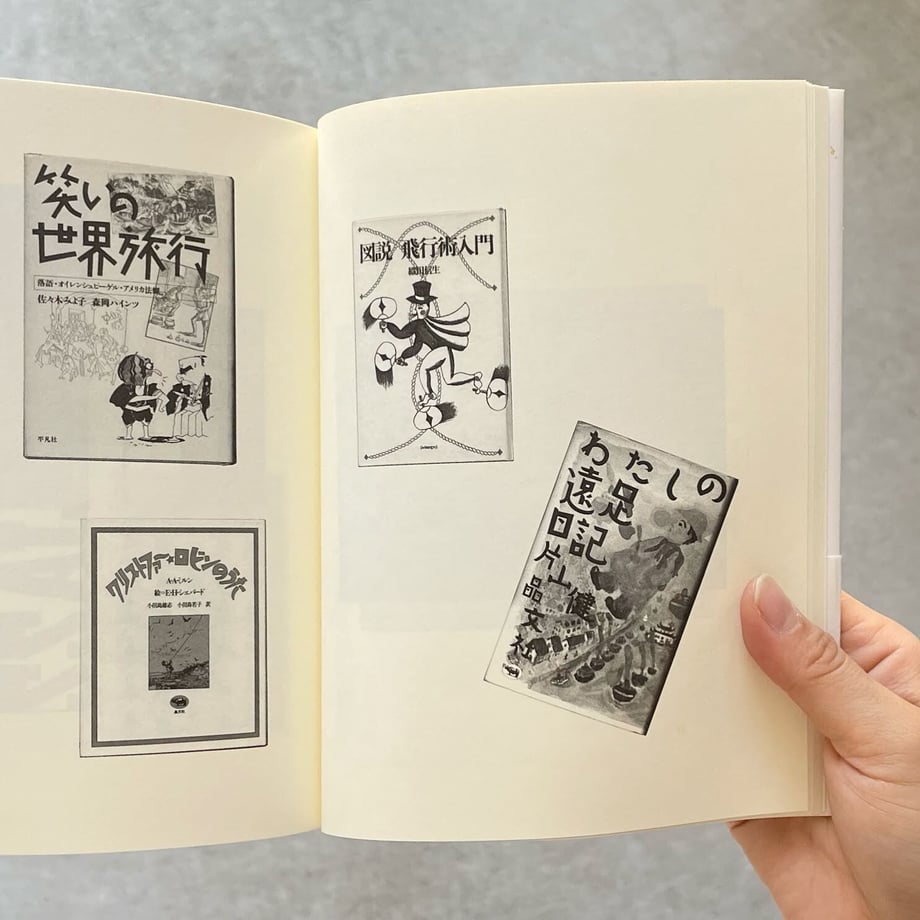 笑いの
世界旅行
落語・オイレンシュピーゲル・アメリカ法螺
佐々木みよ子 森岡ハインツ
平凡社
クリストファー★ロビンのうた
A・A・ミルン
絵＝E・H・シェパード
小田島雄志 小田島若子 訳
晶文社
図説 飛行術入門
わたしの
遠足
日記
片山健
晶文社